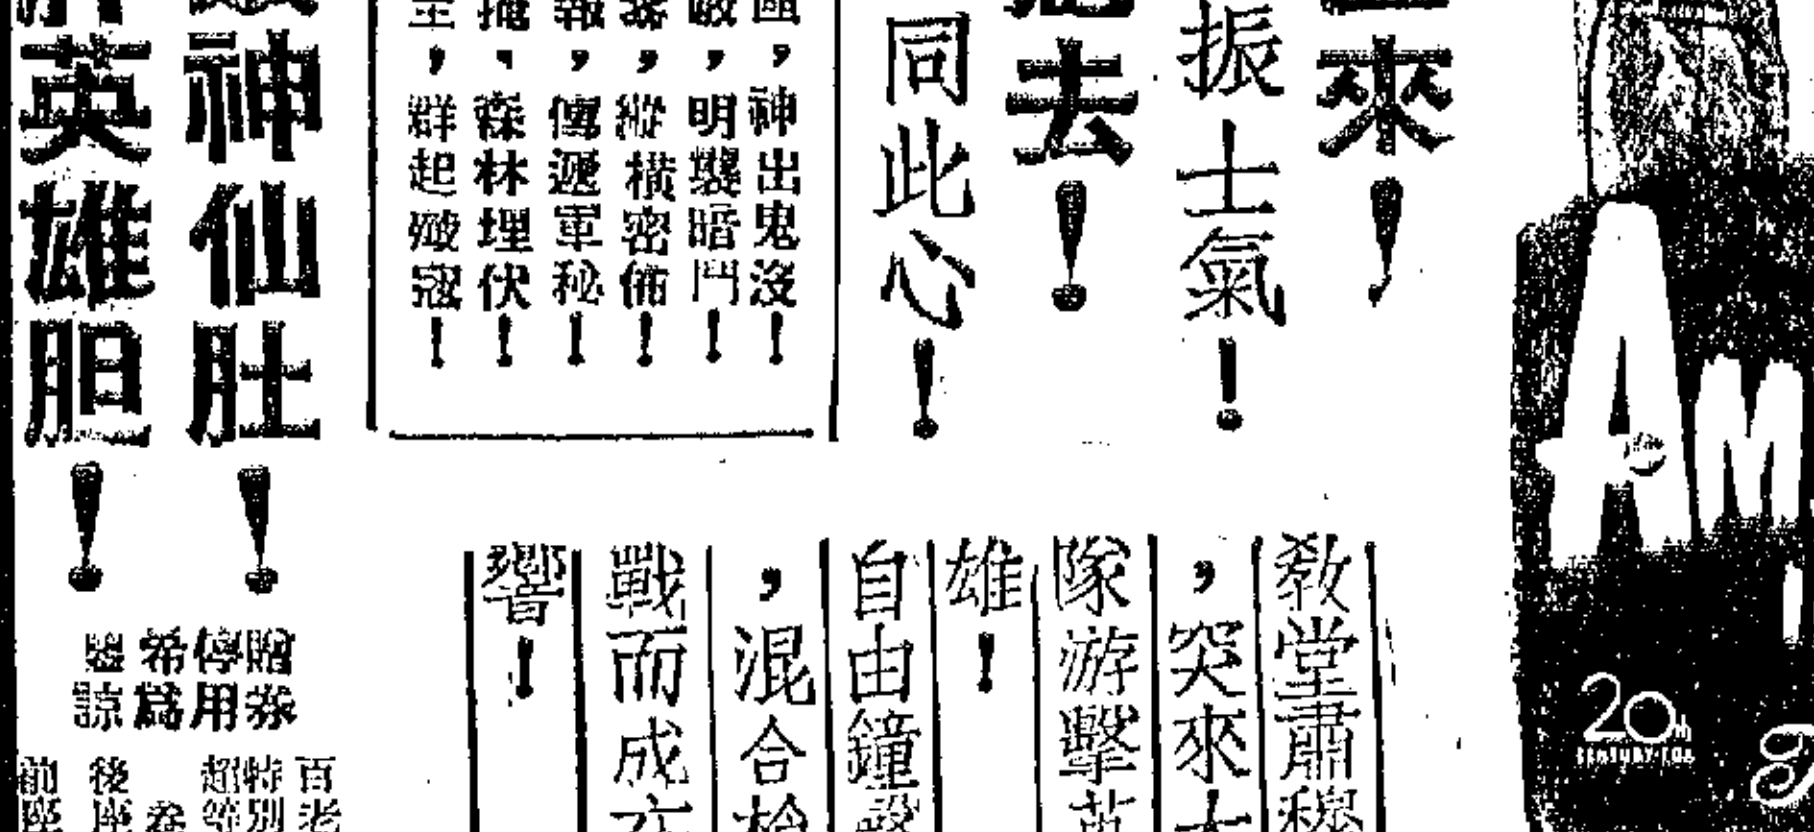 來！
振士氣！
去！
同此心！
國，神出鬼沒！
敵，明襲暗鬥！
，縱橫密佈！
報，傳遞軍秘！
掩，森林埋伏！
，群起殲寇！
神仙肚！
英雄胆！
教堂肅穆
，突來
隊游擊英
雄！
自由鐘聲
，混合槍
戰而成
響！
贈券
停用
希為
諒
百老
特別
超等
後座
前座
A M
20th
CENTURY-FOX